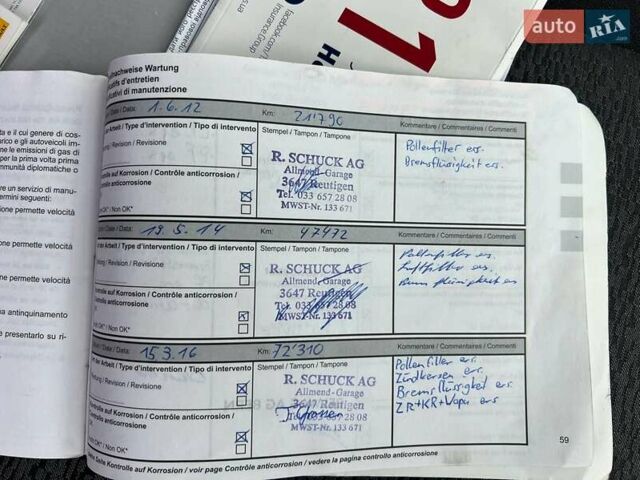 auto RIA.com
s.ua
facebook.com/
Insurance Group
01
nachweise Wartung
icatifs d'entretien
icativi di manutenzione
Data / Data: 1.6.12 Km: 21'790
der Arbeit / Type d'intervention / Tipo di intervento
Stempel / Tampon / Tampone
Kommentare / Commentaires / Commenti
/ Revision / Revisione
R. SCHUCK AG
Allmend-Garage
3647 Reutigen
Tel. 033 657 28 08
MWST-Nr. 133 671
Pollenfilter ers.
Bremsflüssigkeit ers.
ntrolle auf Korrosion / Contrôle anticorrosion /
anticorrosione
OK* / Non OK*
/ Data: 19.5.14 Km: 47472
der Arbeit / Type d'intervention / Tipo di intervento
Stempel / Tampon / Tampone
Kommentare / Commentaires / Commenti
/ Revision / Revisione
R. SCHUCK AG
Allmend-Garage
3647 Reutigen
Tel. 033 657 28 08
MWST-Nr. 133 671
Pollenfilter ers.
Luftfilter ers.
Bremsflüssigkeit ers
ntrolle auf Korrosion / Contrôle anticorrosion /
anticorrosione
OK* / Non OK*
/ Date / Data: 15.3.16 Km: 72'310
der Arbeit / Type d'intervention / Tipo di intervento
Stempel / Tampon / Tampone
Kommentare / Commentaires / Commenti
/ Revision / Revisione
R. SCHUCK AG
Allmend-Garage
3647 Reutigen
Tel. 033 657 28 08
MWST-Nr. 133 671
Pollenfilter ers.
Zündkerzen ers.
Bremsflüssigkeit ers
ZR+KR+Wapu ers
ntrolle auf Korrosion / Contrôle anticorrosion /
anticorrosione
OK* / Non OK*
59
siehe Seite Kontrolle auf Korrosion / voir page Contrôle anticorrosion / vedere la pagina controllo anticorrosione
ata e il cui genere di cos-
erico e gli autoveicoli im-
e le emissioni di gas di
per la prima volta prima
munità diplomatiche o
e un servizio di manu-
ermini seguenti:
one permette velocità
one permette velocità
one permette velocità
a antinquinamento
presentarlo su ri-